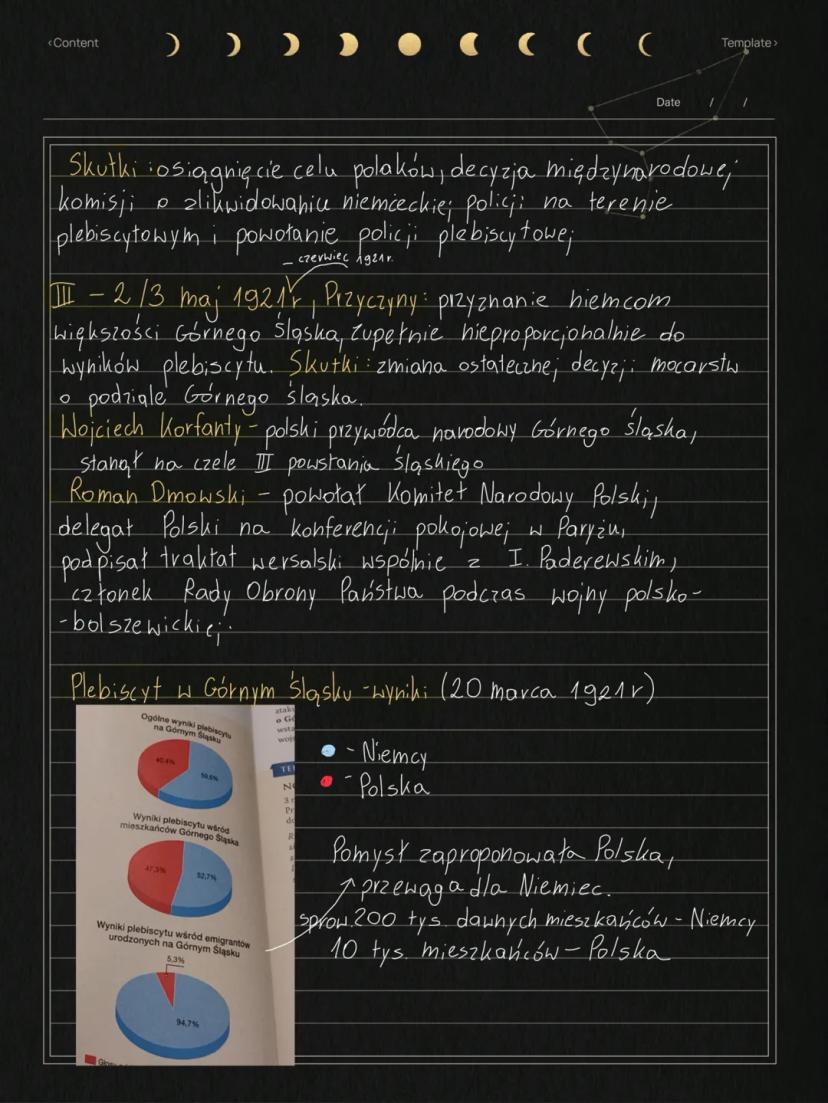 ‹Content
Template›
Date / /
Skutki : osiągnięcie celu polaków, decyzja międzynarodowej
komisji o zlikwidowaniu niemieckiej policji na terenie
plebiscytowym i powołanie policji plebiscytowej
– czerwiec 1921r.
III – 2/3 maj 1921r, Przyczyny: przyznanie niemcom
większości Górnego Śląska, zupełnie nieproporcjonalnie do
wyników plebiscytu. Skutki : zmiana ostatecznej decyzji mocarstw
o podziale Górnego śląska.
Wojciech Korfanty – polski przywódca narodowy Górnego śląska,
stanął na czele III powstania śląskiego
Roman Dmowski – powołał Komitet Narodowy Polski,
delegat Polski na konferencji pokojowej w Paryżu,
podpisał traktat wersalski wspólnie z I. Paderewskim,
członek Rady Obrony Państwa podczas wojny polsko-
-bolszewickiej.
Plebiscyt w Górnym śląsku -wyniki (20 marca 1921r)
Ogólne wyniki plebiscytu
na Górnym Śląsku
40,4%
59,6%
Wyniki plebiscytu wśród
mieszkańców Górnego Śląska
47,3%
52,7%
Wyniki plebiscytu wśród emigrantów
urodzonych na Górnym Śląsku
5,3%
94,7%
- Niemcy
- Polska
Pomysł zaproponowała Polska,
przewaga dla Niemiec.
sprow. 200 tys. dawnych mieszkańców – Niemcy
10 tys. mieszkańców – Polska